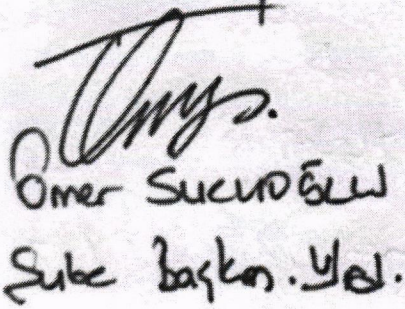 Ömer SUCUOĞLU
Şube Başkan. Yrd.